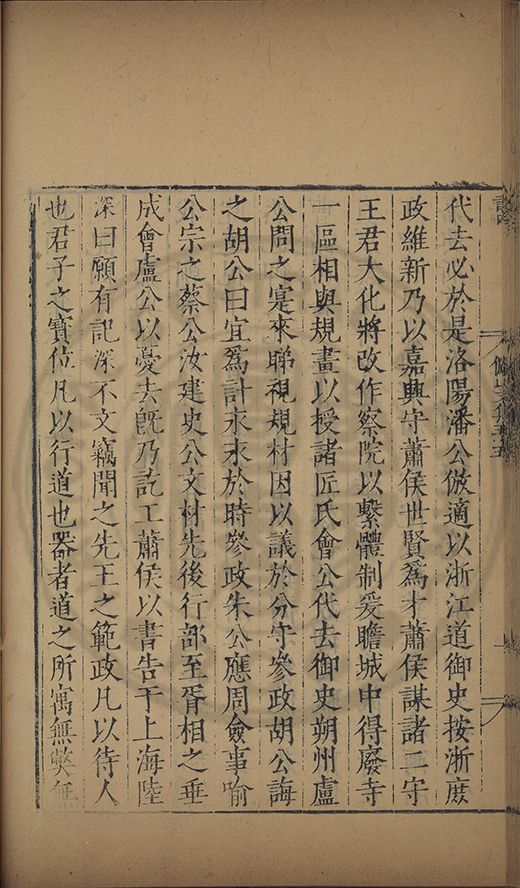 代去必於是洛陽潘公倣適以浙江道御史按浙庶
政維新乃以嘉興守蕭侯世賢爲才蕭侯謀諸二守
王君大化將改作察院以繫體制爰瞻城中得廢寺
一區相與規畫以授諸匠氏會公代去御史朔州盧
公問之寔來睇視規材因以議於分守參政胡公誨
之胡公曰宜爲計永永於時參政朱公應周僉事喻
公宗之蔡公汝建史公文材先後行部至胥相之垂
成會盧公以憂去旣乃訖工蕭侯以書告于上海陸
深曰願有記深不文竊聞之先王之範政凡以待人
也君子之寶位凡以行道也器者道之所寓無獘無